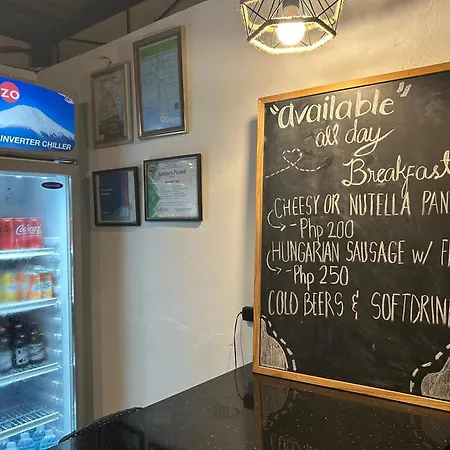 ZO
INVERTER CHILLER
Coca-Cola
Sanitary Permit
"available"
all day
Breakfast
CHEESY OR NUTELLA PAN
- Php 200
HUNGARIAN SAUSAGE W/ F
- Php 250
COLD BEERS & SOFTDRIN